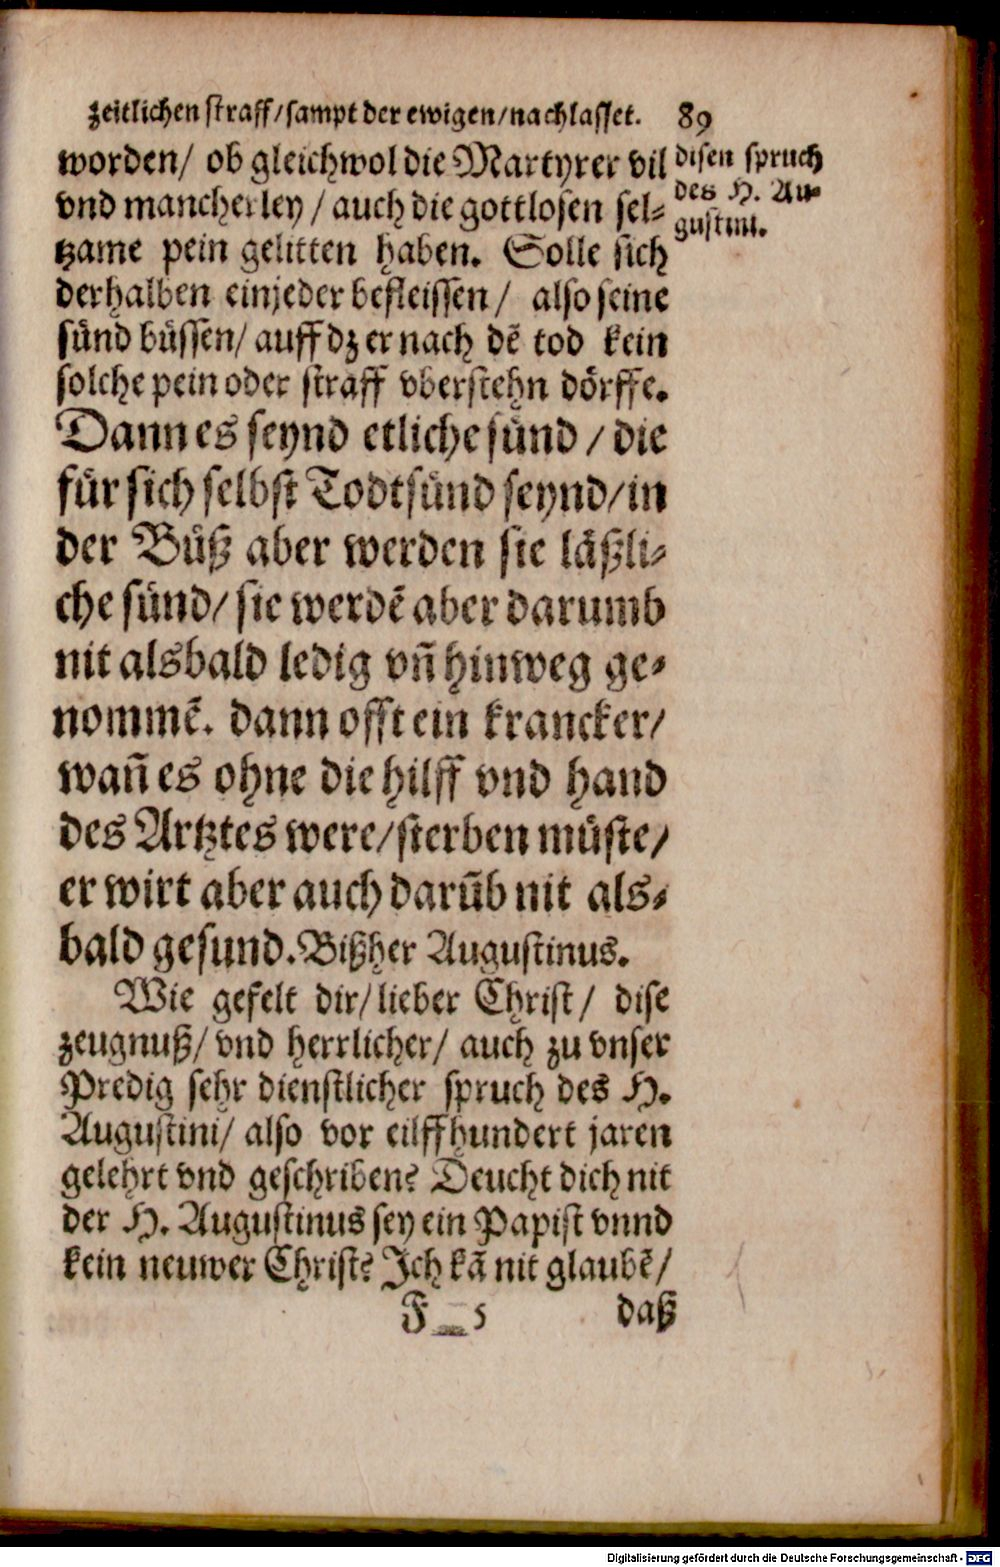 zeitlichen straff/sampt der ewigen/nachlasset. 89
worden/ ob gleichwol die Martyrer vil
vnd mancherley / auch die gottlosen sel⸗
tzame pein gelitten haben. Solle sich
derhalben einjeder befleissen/ also seine
sünd büssen/ auff dz er nach dē tod kein
solche pein oder straff vberstehn dörffe.
Dann es seynd etliche sünd / die
für sich selbst Todtsünd seynd/in
der Büß aber werden sie läßli⸗
che sünd/ sie werdē aber darumb
nit alsbald ledig vñ hinweg ge⸗
nommē. dann offt ein krancker/
wañ es ohne die hilff vnd hand
des Artztes were/sterben müste/
er wirt aber auch darūb nit als⸗
bald gesund. Bißher Augustinus.
Wie gefelt dir/ lieber Christ/ dise
zeugnuß/ vnd herrlicher/ auch zu vnser
Predig sehr dienstlicher spruch des H.
Augustini/ also vor eilffhundert jaren
gelehrt vnd geschriben? Deucht dich nit
der H. Augustinus sey ein Papist vnnd
kein neuwer Christ? Jch kā nit glaubē/
F 5 daß
disen spruch
des H. Au⸗
gustini.
Digitalisierung gefördert durch die Deutsche Forschungsgemeinschaft - DFG